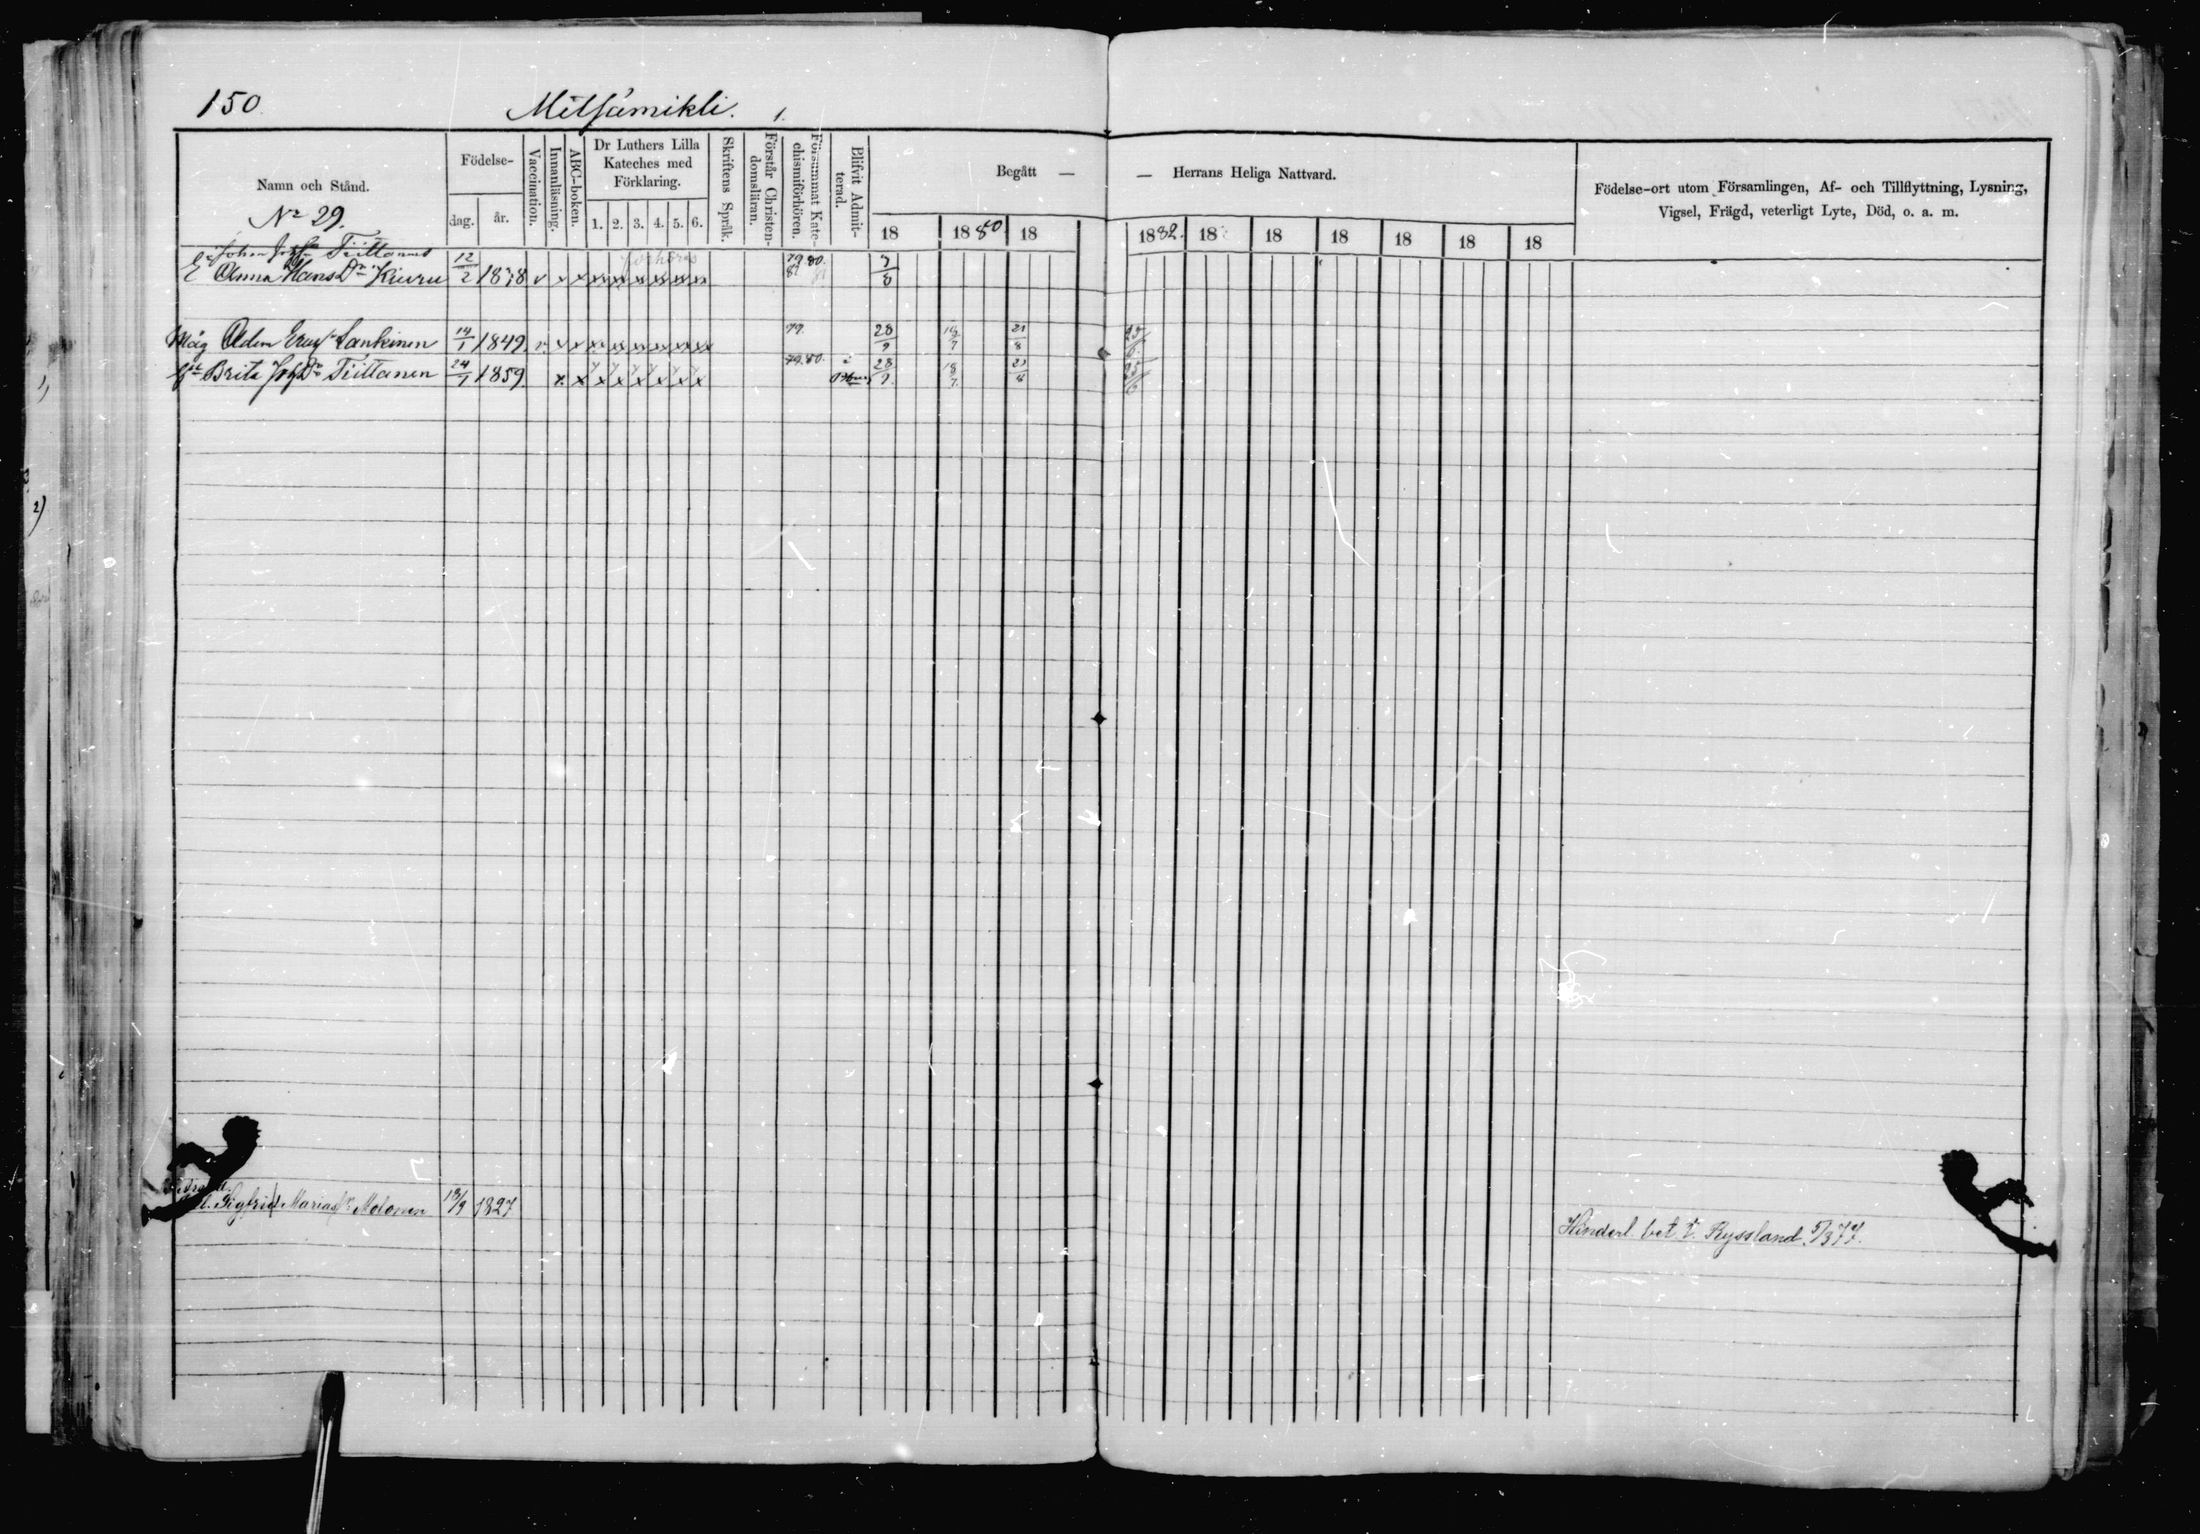 150
Mitsämikli.
1.
Namn och Stånd.
Födelse-
dag. år.
Vaccination.
Innanläsning.
ABC-boken.
Dr Luthers Lilla
Kateches med
Förklaring.
1. 2. 3. 4. 5. 6.
Skriftens Språk.
Förstår Christen-
domsläran.
Försummat Kate-
chismiförhören.
Blifvit Admit-
terad.
Begått —
— Herrans Heliga Nattvard.
18 1880 18
1882. 18 18 18 18 18 18
Födelse-ort utom Församlingen, Af- och Tillflyttning, Lysning,
Vigsel, Frägd, veterligt Lyte, Död, o. a. m.
No 29.
Johan Tiittanens
E Anna Hans Dr Kiuru 12/2 1838 v x x x x x x x x 79 80. 81
Måg Adam Lankinen 14/1 1849 v x x x x x x x x 79 28/9 18/7 21/8 25/6
Brita Tiittanen 24/1 1859 x x x x x x x x 79.80. 28/9 18/7 21/8 25/6
Sigfrid Mariasn Molonen 18/9 1827
Hinderl. bet. t. Ryssland. 5/3 77.
1)
2)